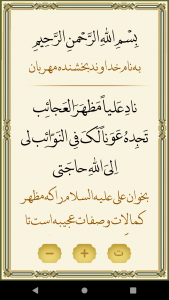 بِسْمِ اللهِ الرَّحْمنِ الرَّحِيْمِ
به نام خداوند بخشنده مهربان
نادِ عَلیاً مَظهَرَ العَجائِب
تَجِدهُ عَوناً لَکَ فِی النَوّائِب لی
اِلیَ اللهِ حاجَتی
بخوان علی علیه السلام را که مظهر
کمالات و صفات عجیبه است تا
− + ت